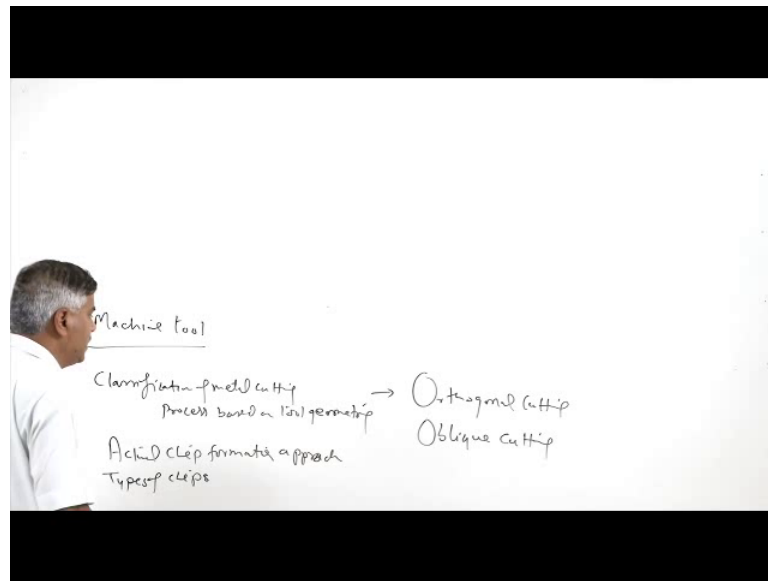 Machine tool
Classification of metal cutting
Process based on tool geometric
→ Orthogonal cutting
Oblique cutting
Actual chip formation approach
Types of chips